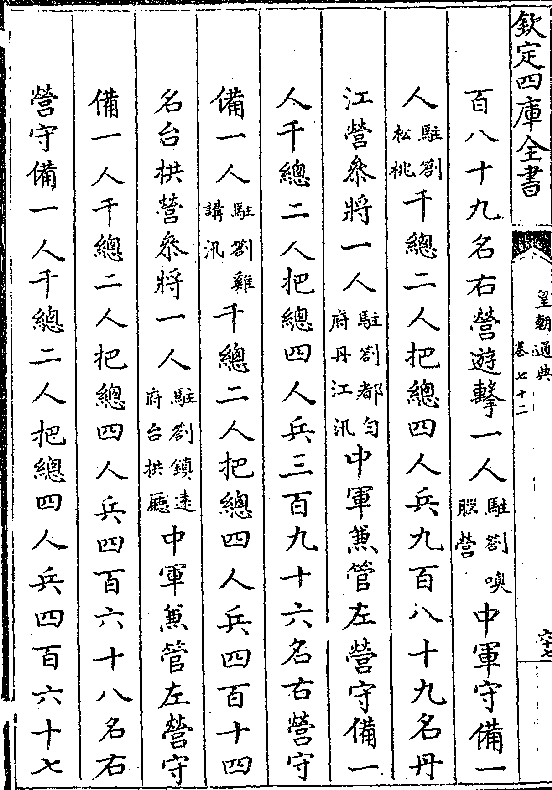 欽定四庫全書
皇朝通典
卷七十二
百八十九名右營遊擊一人駐劄嗅腦營中軍守備一
人駐劄松桃千總二人把總四人兵九百八十九名丹
江營叅將一人駐劄都勻府丹江汛中軍兼管左營守備一
人千總二人把總四人兵三百九十六名右營守
備一人駐劄雞講汛千總二人把總四人兵四百十四
名台拱營叅將一人駐劄鎮遠府台拱廳中軍兼管左營守
備一人千總二人把總四人兵四百六十八名右
營守備一人千總二人把總四人兵四百六十七